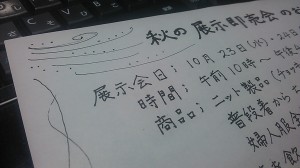 秋の展示即売会の
展示会日；10月23日(水)・24日
時間；午前10時〜午後
商品；ニット製品(
普段着から
婦人服全